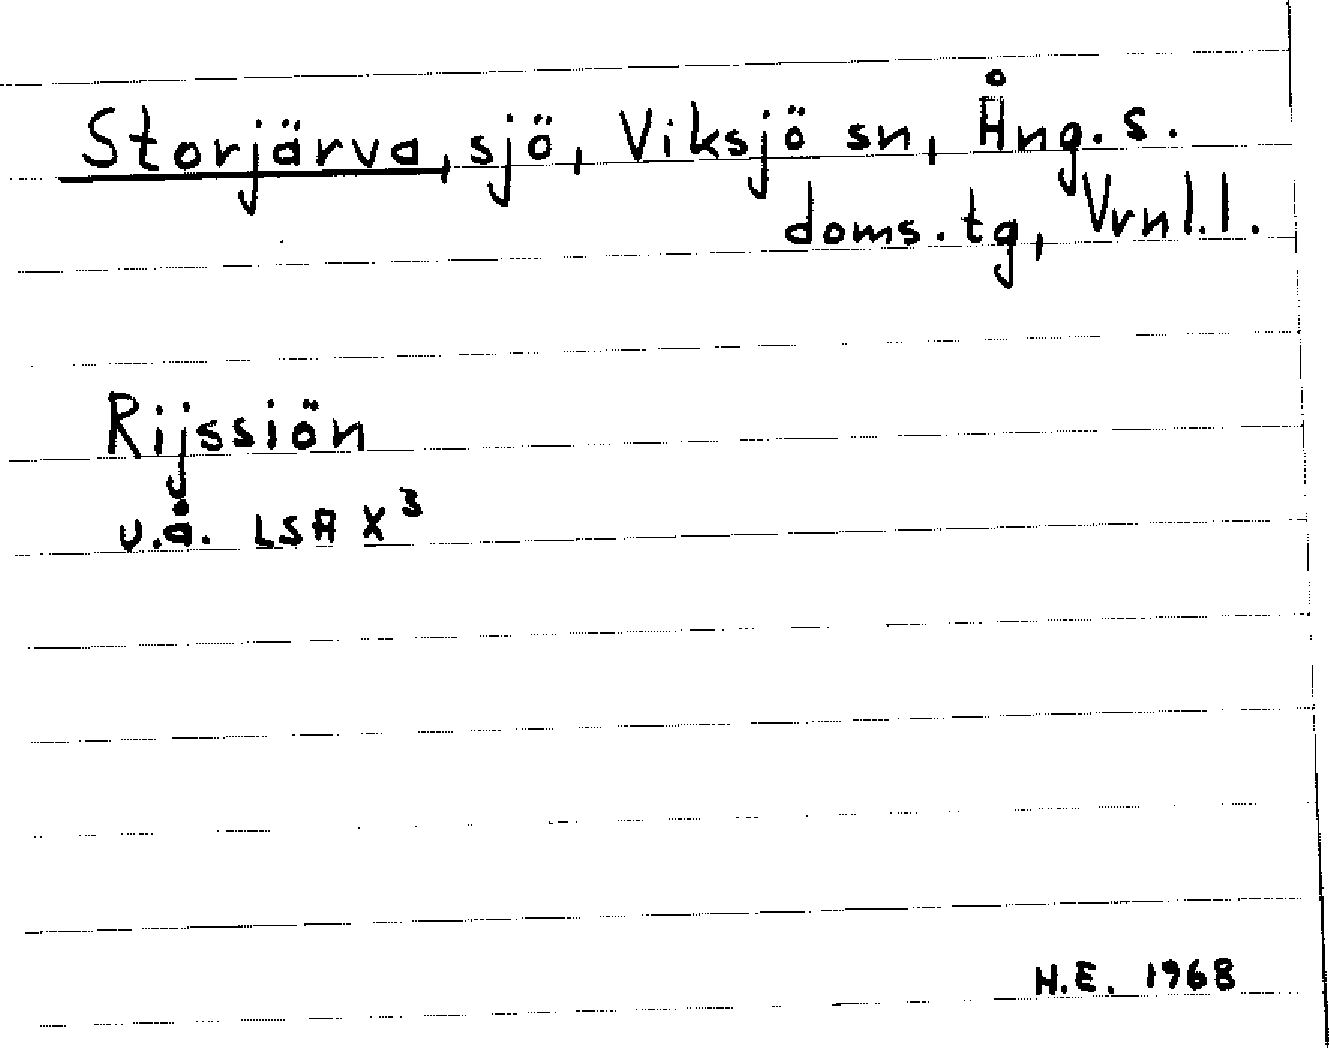 Storjärva, sjö, Viksjö sn, Ång. s.
doms. tg, Vrnl. l.
Rijssiön
u.å. LSA X³
H.E. 1968